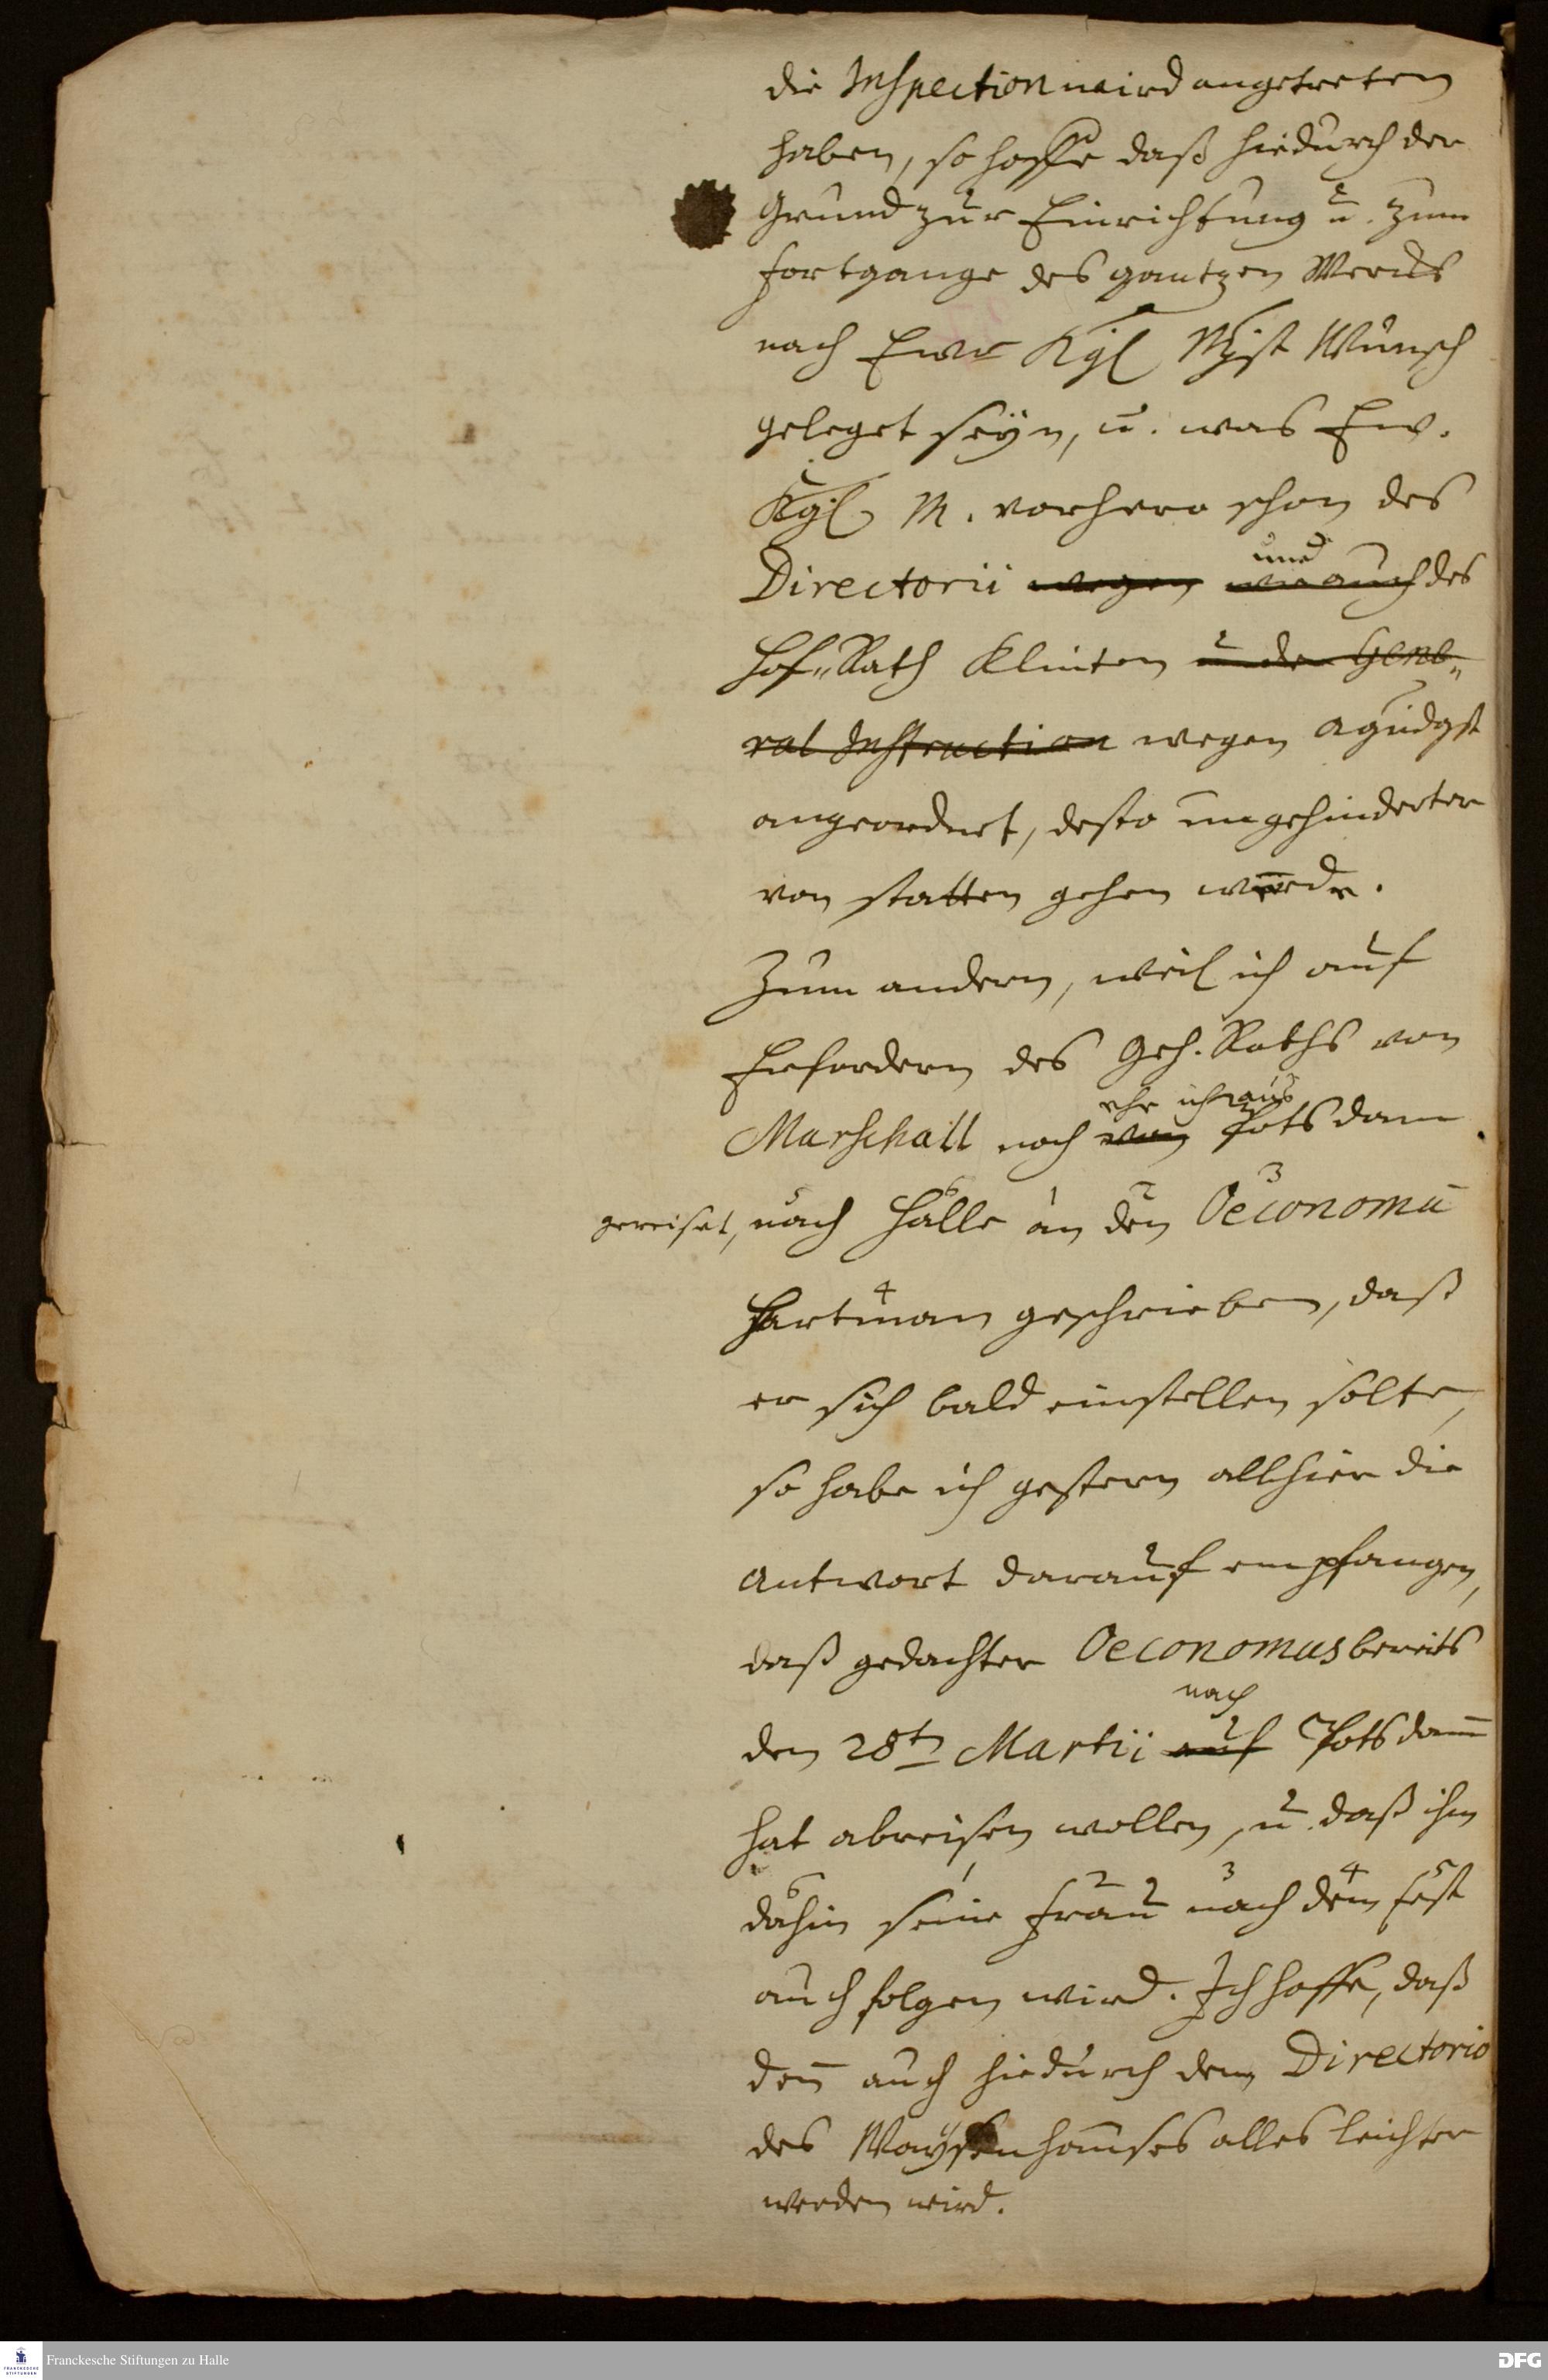 die Inspection wird angetreten
haben, so hoffe daß hiedurch der
Grund zur Einrichtung u. zum
fortgange des gantzen Wercks
nach Ewr Kgl Mjst Wunsch
geleget seyn, u. was Ew.
Kgl M. vorhero schon des
und
Directorii wegen wie auch des
Hof-Rath Klinten u der Gene-
ral Instruction wegen agndgst
angeordnet, desto ungehinderter
von statten gehen werde.
Zum andern, weil ich auf
Erfordern des Geh. Raths von
ehe ich aus
Marschall noch von Potsdam
gereiset, nach Halle an den Oeconomū
Hartman geschrieben, daß
er sich bald einstellen solte,
so habe ich gestern allhier die
Antwort darauf empfangen,
daß gedachter Oeconomus bereits
nach
den 28t Martii auf Potsdam̅
hat abreisen wollen, u. daß ihm
dahin seine Frau nach dem Fest
auch folgen wird. Ich hoffe, daß
den̅ auch hiedurch dem Directorio
des Waysenhauses alles leichter
werden wird.
Franckesche Stiftungen zu Halle
DFG